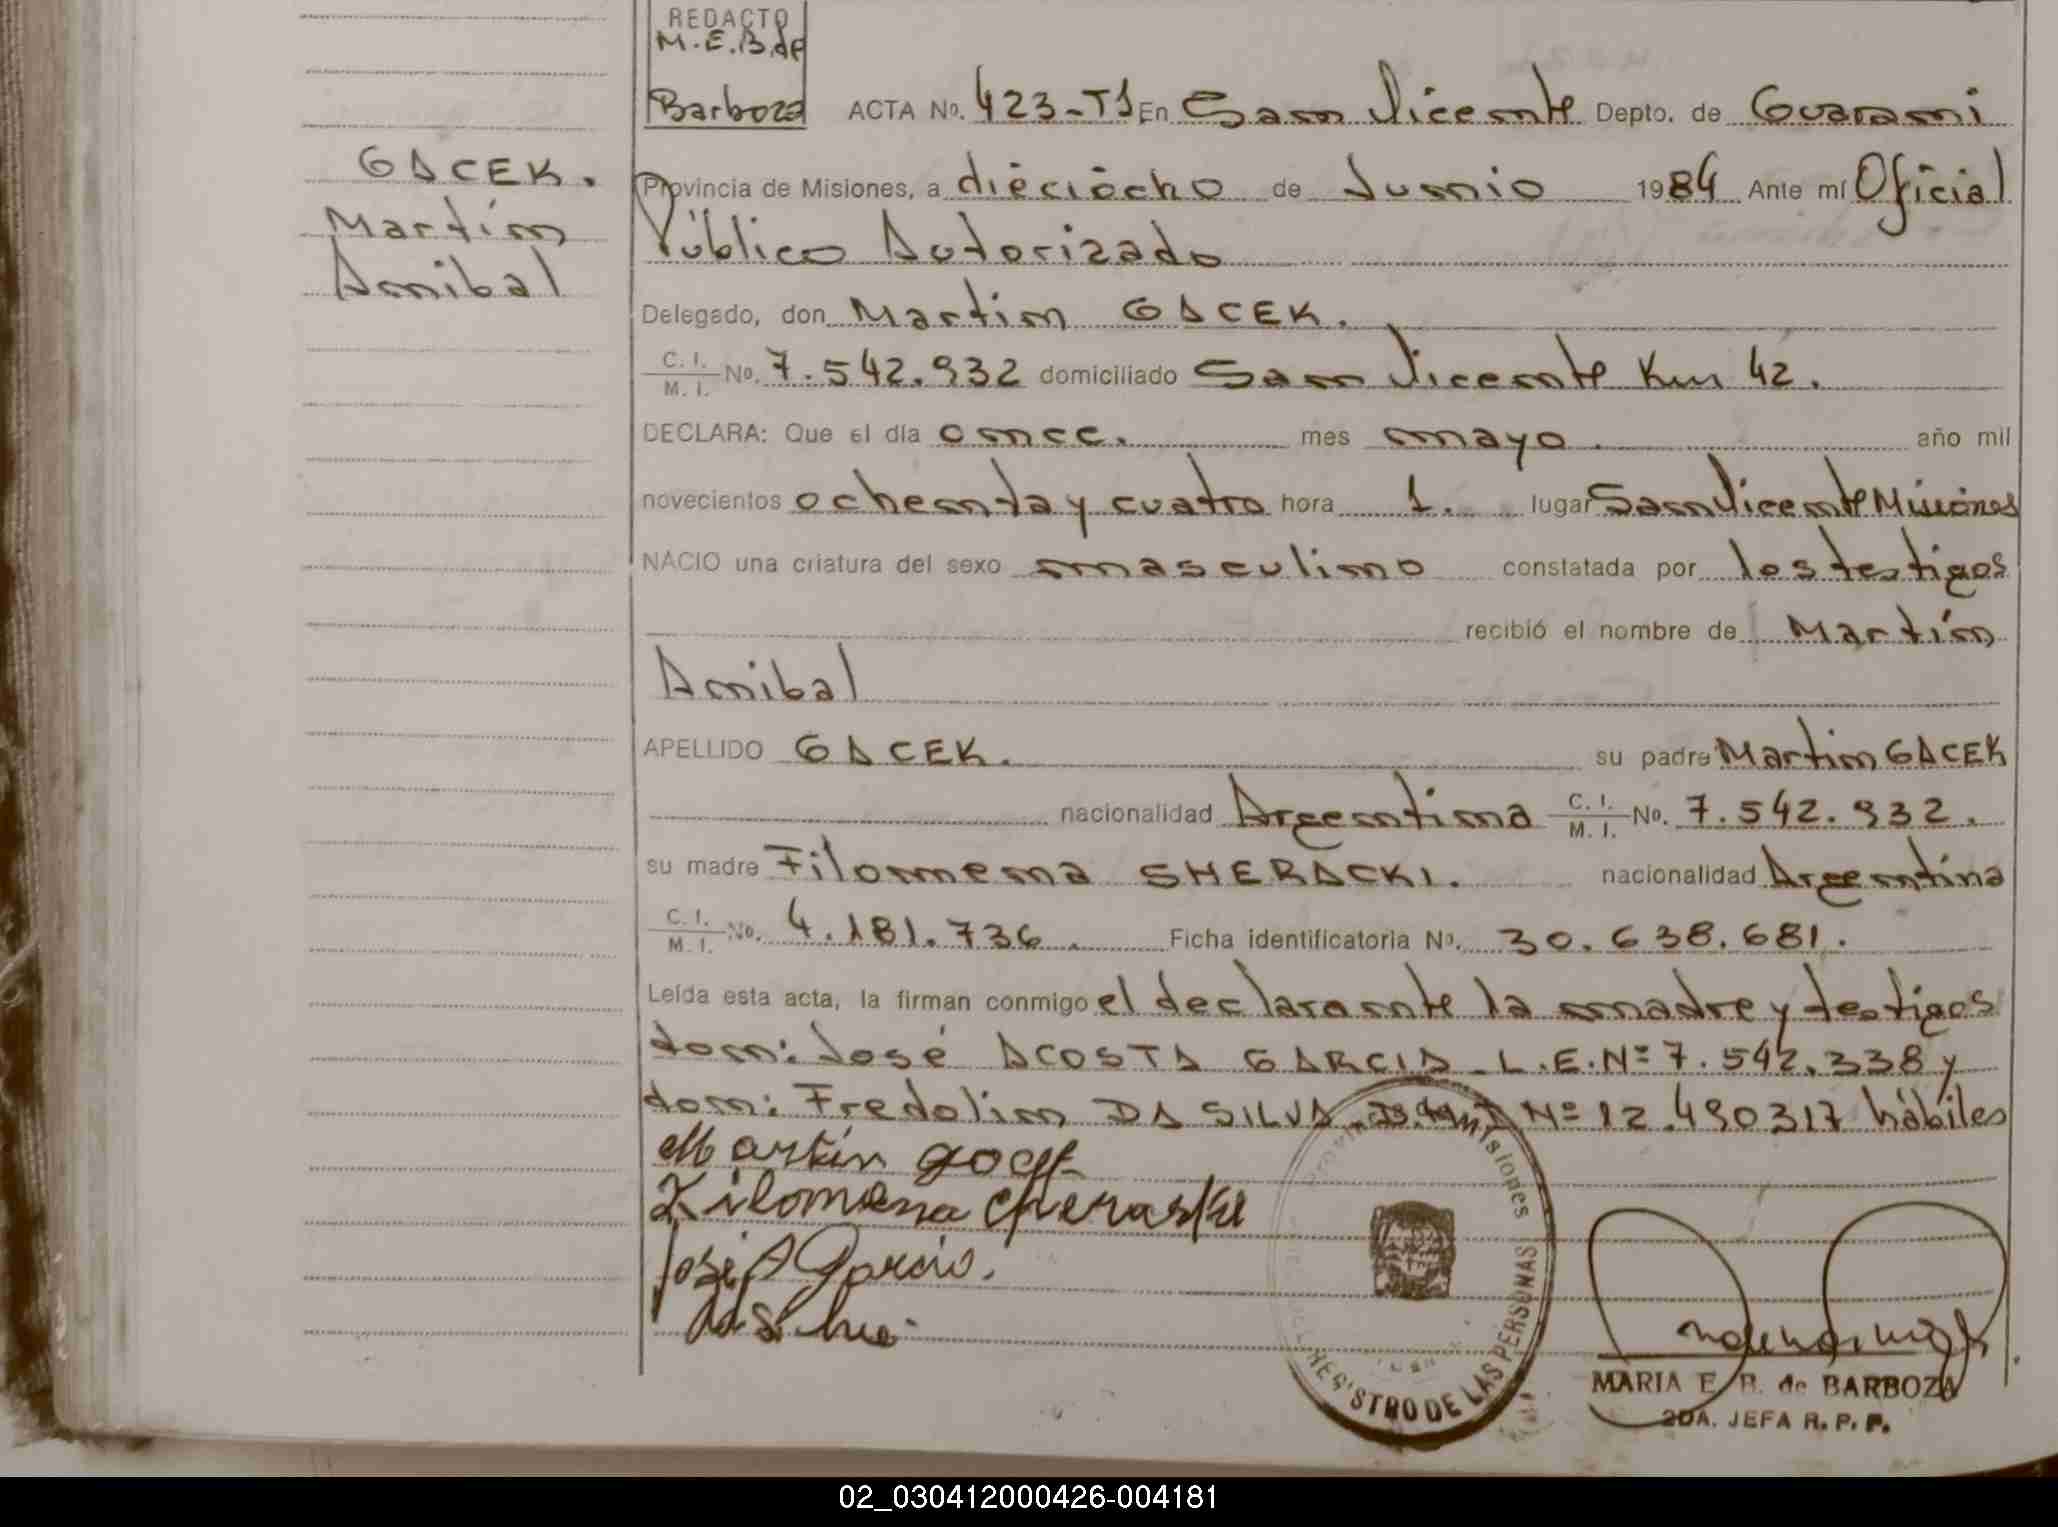 REDACTO
M.E.B.de
Barboza
ACTA Nº. 423-T1 En San Vicente Depto. de Guarani
GACEK.
Martín
Anibal
Provincia de Misiones, a dieciocho de Junio 1984 Ante mí Oficial
Público Autorizado
Delegado, don Martin GACEK.
C. I. / M. I. Nº. 7.542.932 domiciliado San Vicente Km 42.
DECLARA: Que el día once. mes mayo. año mil
novecientos ochenta y cuatro hora 1. lugar San Vicente Misiones
NACIO una criatura del sexo masculino constatada por los testigos
recibió el nombre de Martín
Anibal
APELLIDO GACEK. su padre Martin GACEK
nacionalidad Argentina C. I. / M. I. Nº. 7.542.932.
su madre Filomena SHERACKI. nacionalidad Argentina
C. I. / M. I. Nº. 4.181.736. Ficha identificatoria Nº. 30.638.681.
Leída esta acta, la firman conmigo el declarante la madre y testigos
don: José ACOSTA GARCIA - L.E.Nº 7.542.338 y
don: Fredolin DA SILVA Nº 12.490317 hábiles
Martín
Filomena
José A Garcia.
da Silva
Provincia de Misiones
REGISTRO DE LAS PERSONAS
MARIA E. B. de BARBOZA
2DA. JEFA R. P. P.
02_030412000426-004181